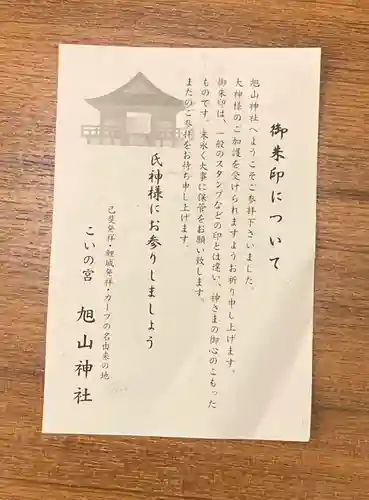 御朱印について
旭山神社へようこそご参拝下さいました。
大神様のご加護を受けられますようお祈り申し上げます。
御朱印は、一般のスタンプなどの印とは違い、神さまの御心のこもった
ものです。末永く大事に保管をお願い致します。
またのご参拝をお待ち申し上げます。
氏神様にお参りしましょう
己斐発祥・鯉城発祥・カープの名由来の地
こいの宮 旭山神社